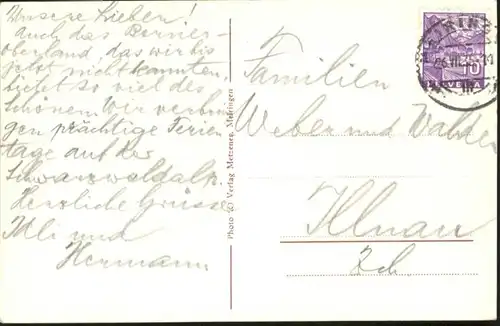 Unsere Lieben!
Auch das Berner-
oberland, das wir bis
jetzt nicht kannten,
bietet so viel des
Schönen. Wir verbrin-
gen prächtige Ferien-
tage auf der
Schwarzwaldalp.
Herzliche Grüsse
und
Hermann
Photo & Verlag Metzener, Meiringen
Familien
Weber und Walder
Illnau
Zch.
10
HELVETIA